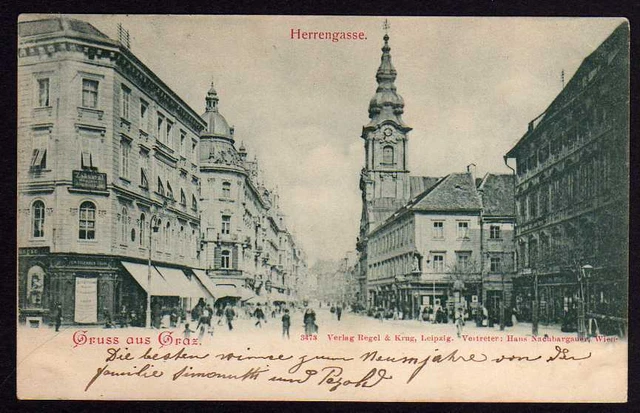 Herrengasse.
Gruss aus Graz.
3473 Verlag Regel & Krug, Leipzig. Vertreter: Hans Nachbargauer, Wien
Die besten winse zum Neumjahre von der
familie Simonutti und Pezold